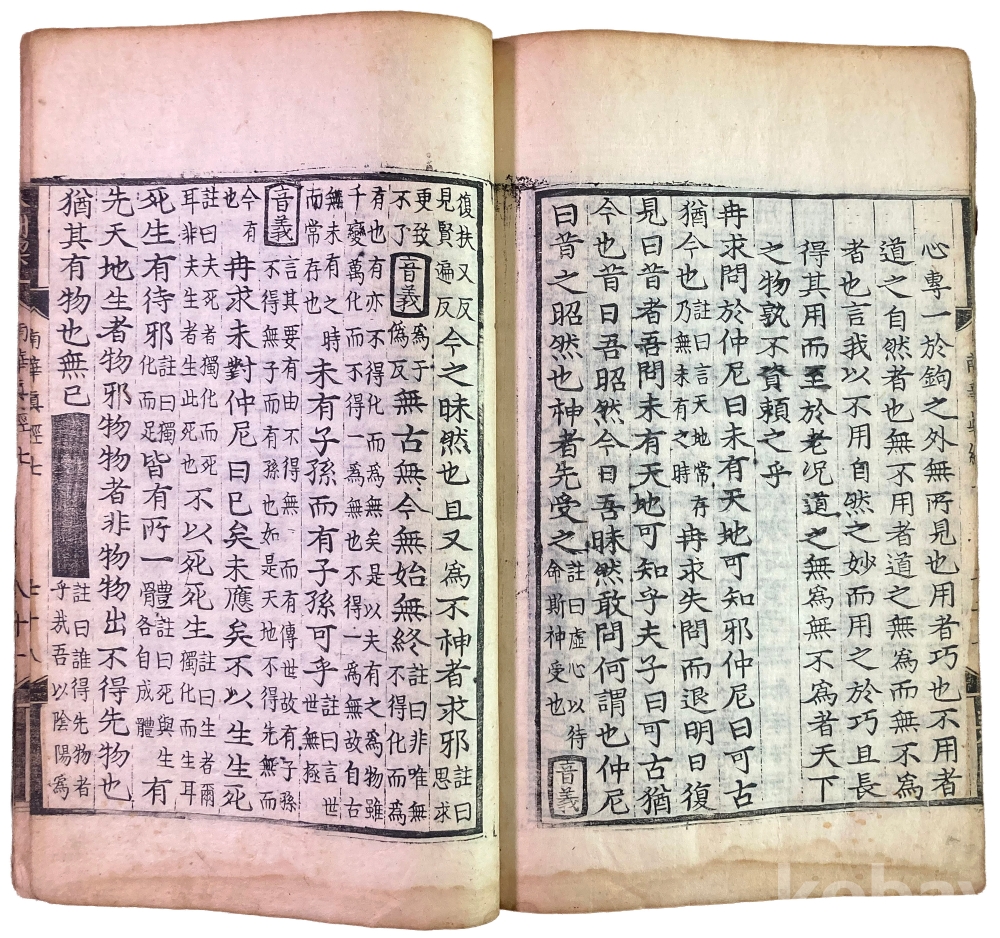 心專一於鉤之外無所見也用者巧也不用者
道之自然者也無不用者道之無爲而無不爲
者也言我以不用自然之妙而用之於巧且長
得其用而至於老況道之無爲無不爲者天下
之物孰不資頼之乎
冉求問於仲尼曰未有天地可知邪仲尼曰可古
猶今也註曰言天地常存乃無未有之時冉求失問而退明日復
見曰昔者吾問未有天地可知乎夫子曰可古猶
今也昔日吾昭然今日吾昧然敢問何謂也仲尼
曰昔之昭然也神者先受之註曰虛心以待命斯神受也音義
復扶又反見賢遍反今之昧然也且又爲不神者求邪註曰思求
更致不了音義爲于偽反無古無今無始無終註曰非唯無不得化而爲
有也有亦不得化而爲無矣是以夫有之爲物雖千變萬化而不得一爲無也不得一爲無故自古
無未有之時而常存也未有子孫而有子孫可乎註曰言世世無極
音義言其要有由不得無而有傳世故有子孫不得無子而有孫也如是天地不得先無而
今有也冉求未對仲尼曰已矣未應矣不以生生死
註曰夫死者獨化而死耳非夫生者生此死也不以死死生註曰生者爾獨化而生耳
死生有待邪註曰獨化而足皆有所一體註曰死與生各自成體有
先天地生者物邪物物者非物物出不得先物也
猶其有物也無已註曰誰得先物者乎哉吾以陰陽爲
南華真經七